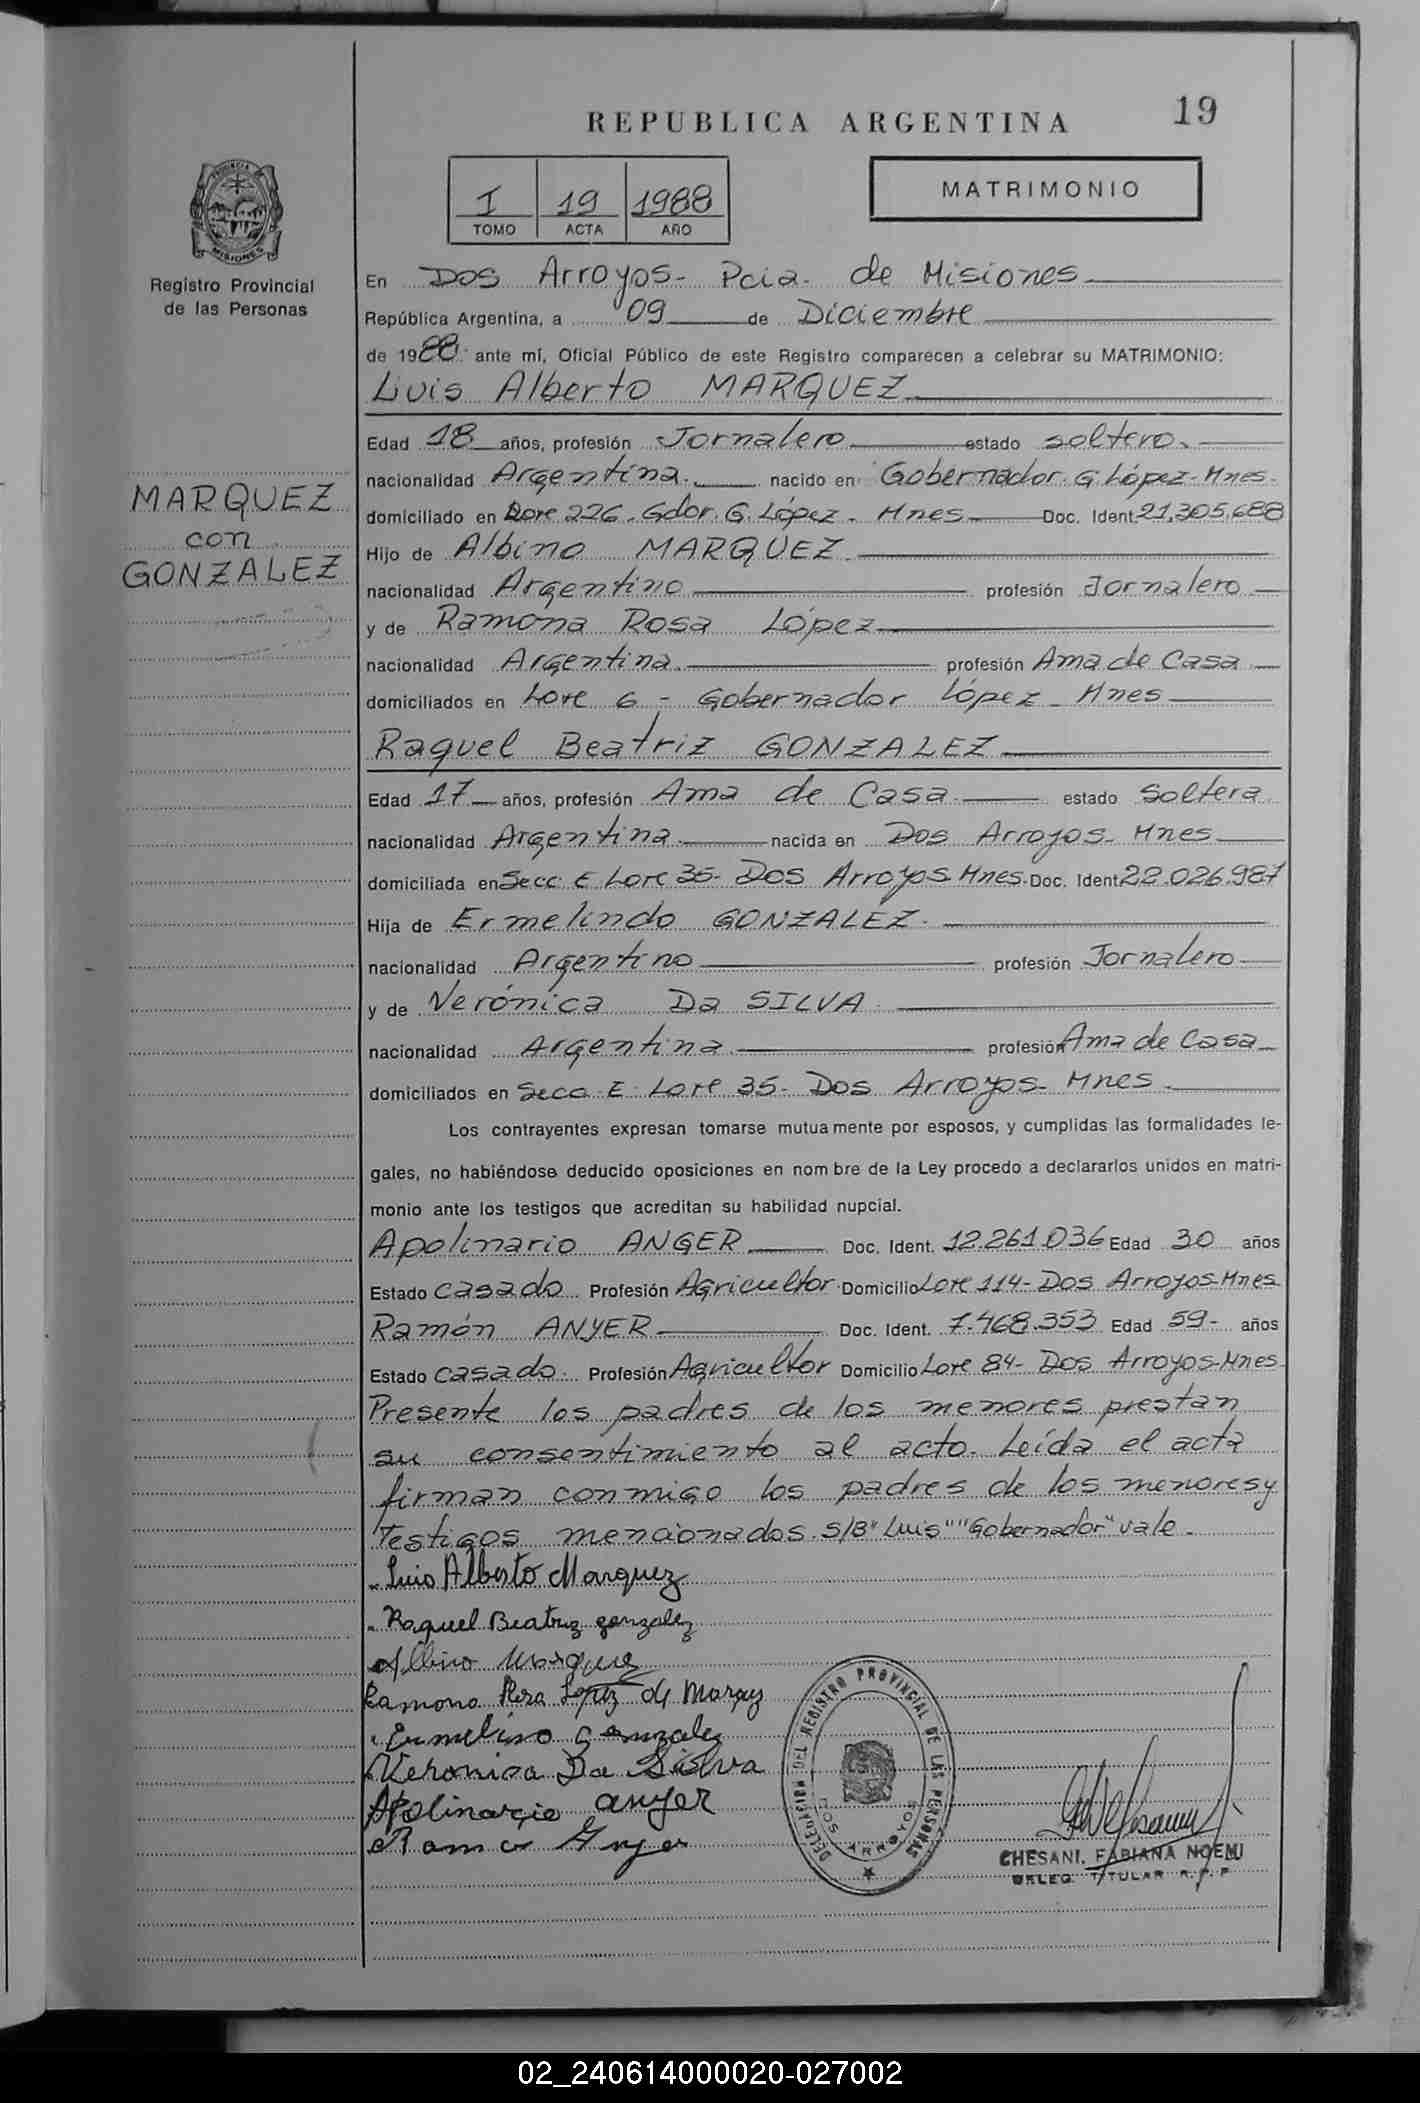 19
REPUBLICA ARGENTINA
I 19 1988
TOMO ACTA AÑO
MATRIMONIO
PROVINCIA DE
MISIONES
Registro Provincial
de las Personas
MARQUEZ
con
GONZALEZ
En Dos Arroyos- Pcia. de Misiones
República Argentina, a 09 de Diciembre
de 1988 ante mí, Oficial Público de este Registro comparecen a celebrar su MATRIMONIO:
Luis Alberto MARQUEZ
Edad 18 años, profesión Jornalero estado soltero.
nacionalidad Argentina. nacido en Gobernador G. López- Mnes-
domiciliado en Lote 226. Gdor. G. López. Mnes Doc. Ident. 21.305.688
Hijo de Albino MARQUEZ
nacionalidad Argentino profesión Jornalero
y de Ramona Rosa López
nacionalidad Argentina. profesión Ama de Casa
domiciliados en Lote 6 - Gobernador López - Mnes
Raquel Beatriz GONZALEZ
Edad 17 años, profesión Ama de Casa estado Soltera
nacionalidad Argentina nacida en Dos Arroyos- Mnes
domiciliada en Secc E Lote 35- Dos Arroyos Mnes. Doc. Ident. 22.026.987
Hija de Ermelindo GONZALEZ.
nacionalidad Argentino profesión Jornalero
y de Verónica Da SILVA
nacionalidad Argentina profesión Ama de Casa
domiciliados en Secc. E Lote 35- Dos Arroyos- Mnes.
Los contrayentes expresan tomarse mutuamente por esposos, y cumplidas las formalidades le-
gales, no habiéndose deducido oposiciones en nombre de la Ley procedo a declararlos unidos en matri-
monio ante los testigos que acreditan su habilidad nupcial.
Apolinario ANGER Doc. Ident. 12.261.036 Edad 30 años
Estado casado Profesión Agricultor Domicilio Lote 114- Dos Arroyos-Mnes.
Ramón ANYER Doc. Ident. 7.468.353 Edad 59- años
Estado casado. Profesión Agricultor Domicilio Lote 84- Dos Arroyos-Mnes
Presente los padres de los menores prestan
su consentimiento al acto. Leída el acta
firman conmigo los padres de los menores y
testigos mencionados. S/B "Luis" "Gobernador" vale.
Luis Alberto Marquez
Raquel Beatriz gonzalez
Albino Marquez
Ramona Rosa Lopez de Marquez
Ermelino Gonzalez
Veronica Da Silva
Apolinario anyer
Ramon Anyer
DELEGACION DEL REGISTRO PROVINCIAL DE LAS PERSONAS
DOS ARROYOS
CHESANI, FABIANA NOEMI
DELEG. TITULAR R.P.P
02_240614000020-027002